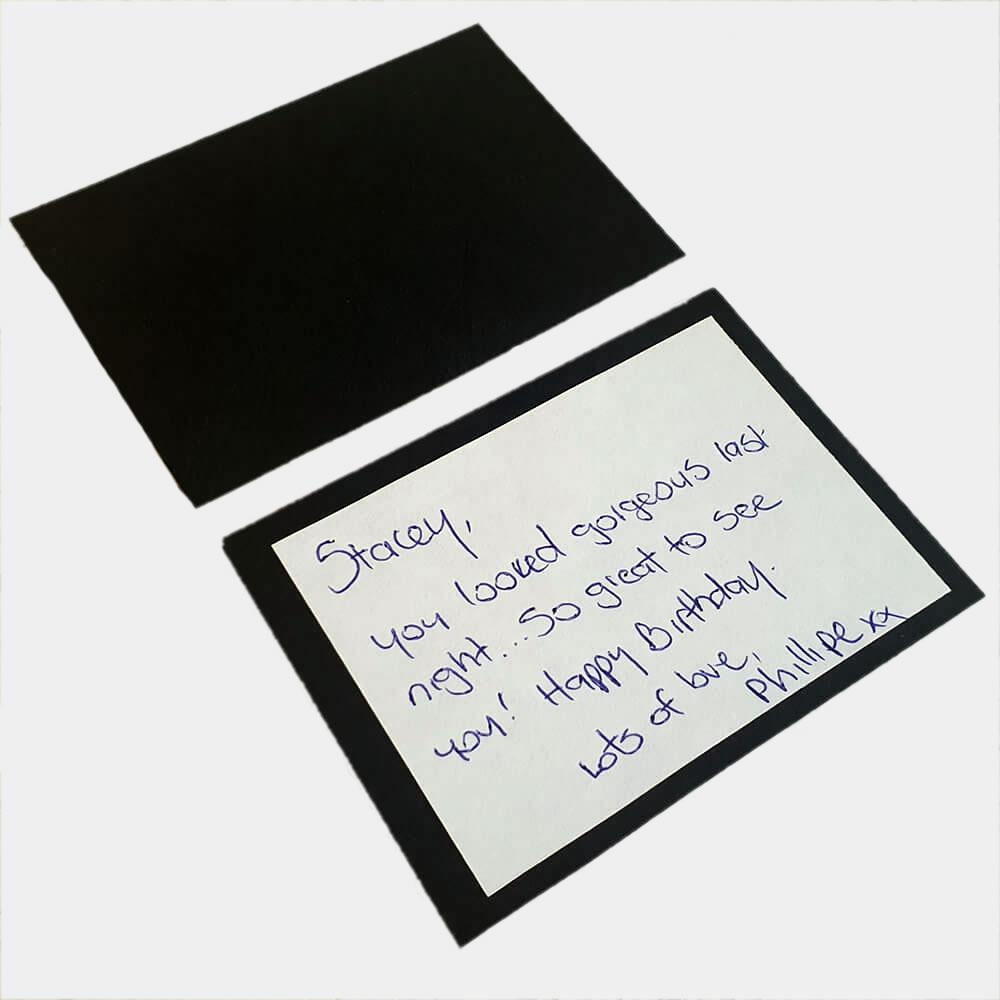 Stacey,
you looked gorgeous last
night...So great to see
you! Happy Birthday.
Lots of love,
Phillipe xx